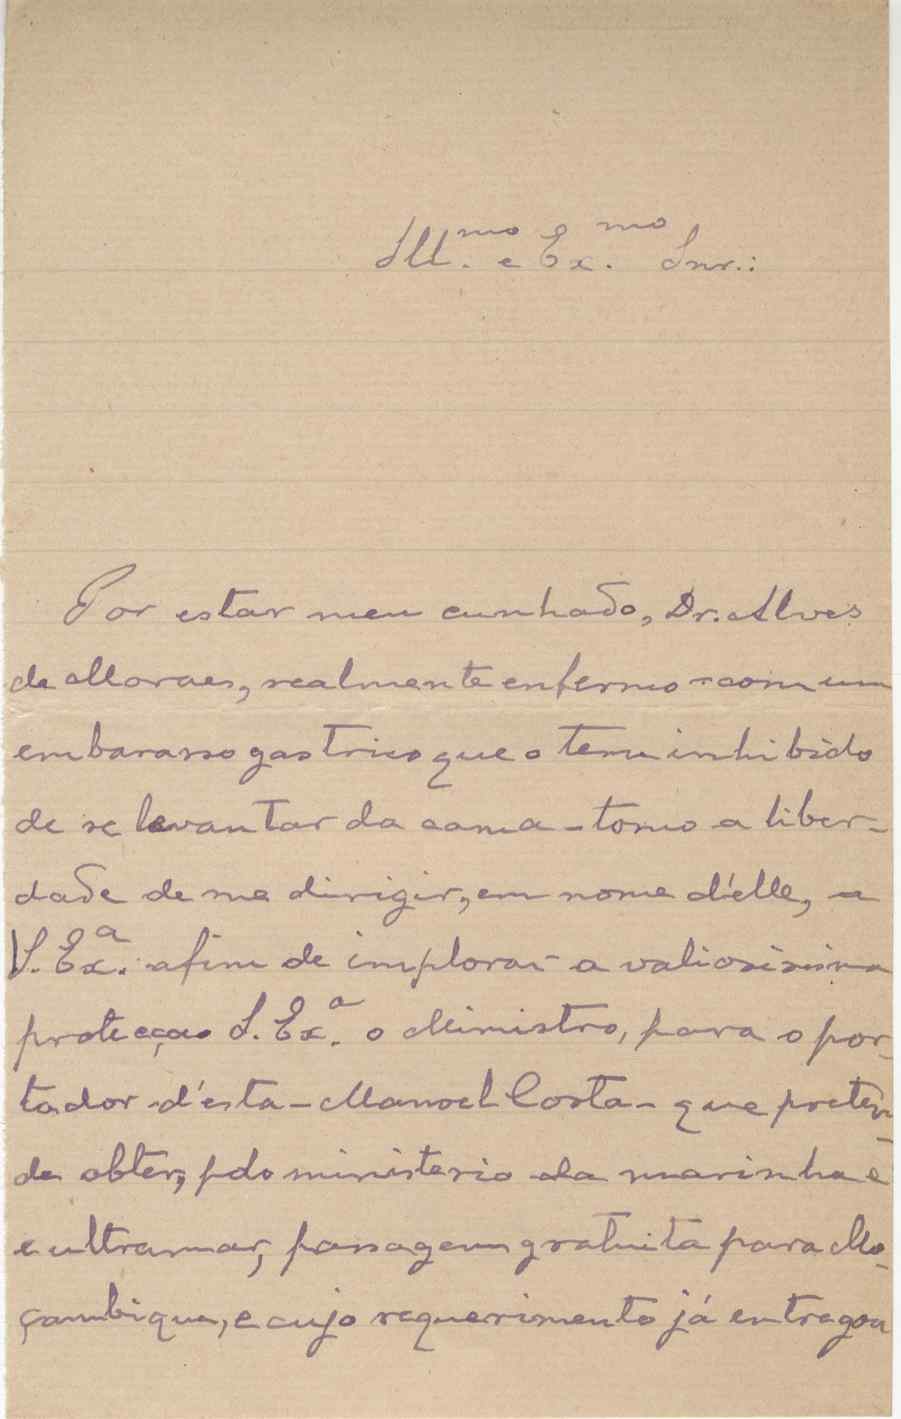 Ill.mo e Ex.mo Snr.:
Por estar meu cunhado, Dr. Alves
de Moraes, realmente enfermo - com um
embarasso gastrico que o tem inhibido
de se levantar da cama - tomo a liber-
dade de me dirigir, em nome d'elle, a
V. Ex.a afim de implorar a valiosissima
protecção S. Ex.a o Ministro, para o por-
tador d'esta - Manoel Costa - que preten-
de obter, pelo ministerio da marinha e
e ultramar, passagem gratuita para Mo-
çambique, e cujo requerimento já entregou